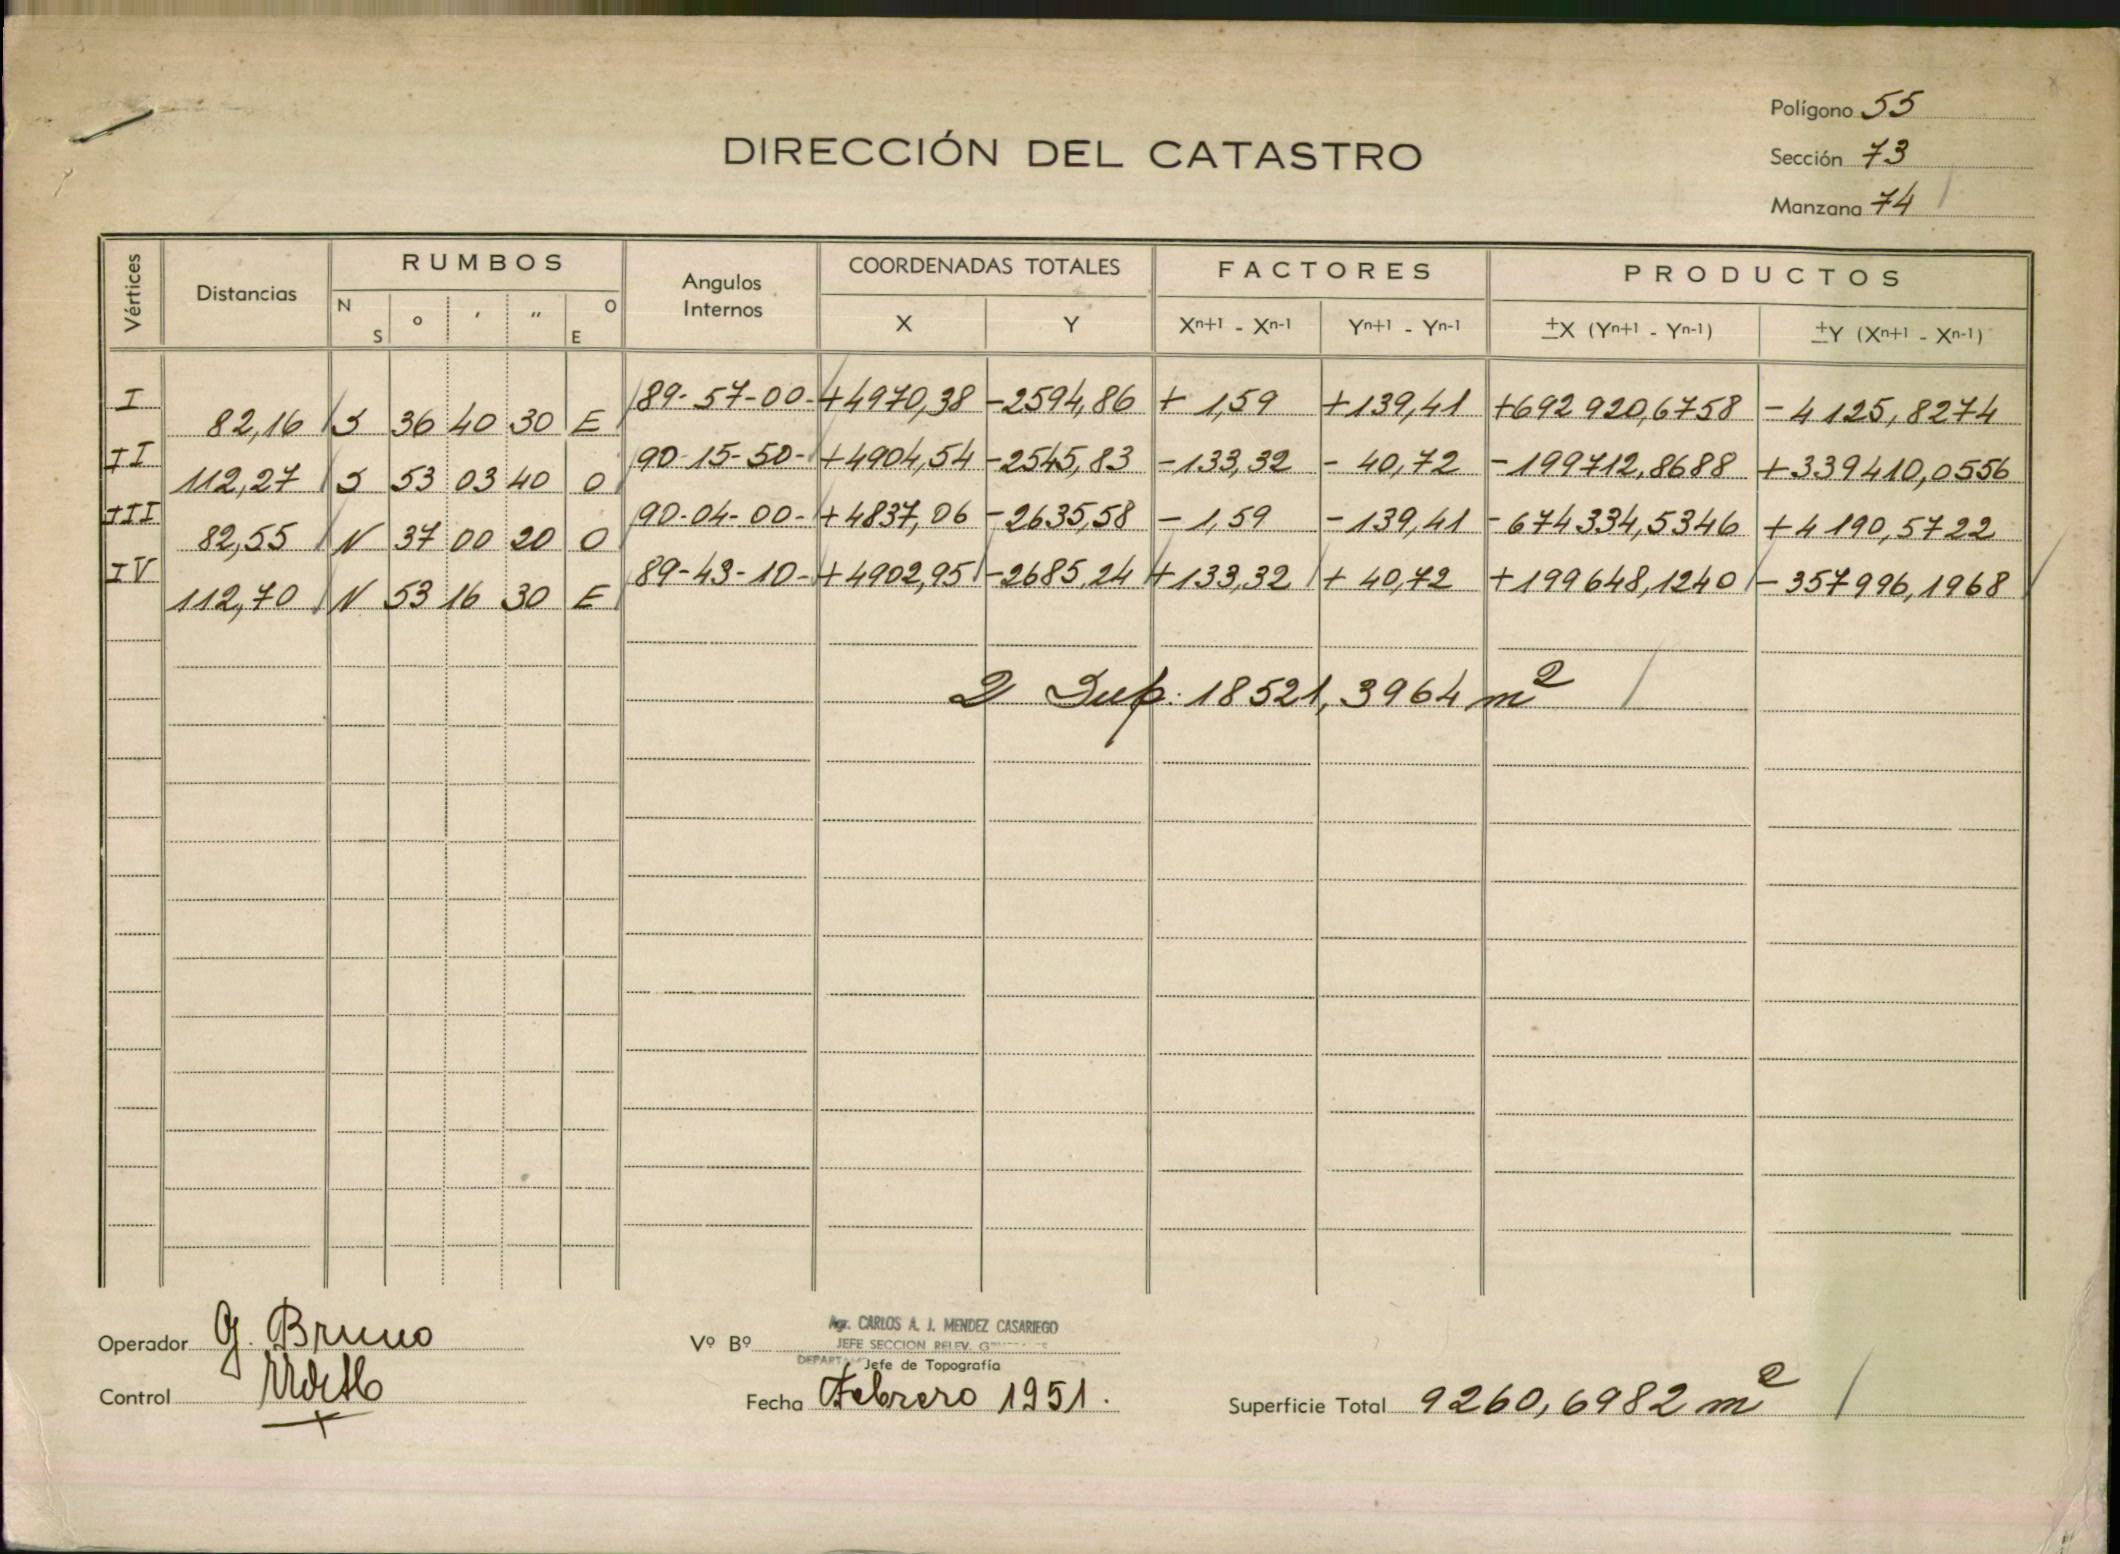 Polígono 55
DIRECCIÓN DEL CATASTRO
Sección 73
Manzana 74
Vértices Distancias RUMBOS Angulos Internos COORDENADAS TOTALES FACTORES PRODUCTOS
N S ° ' " O E X Y Xn+1 - Xn-1 Yn+1 - Yn-1 ±X (Yn+1 - Yn-1) ±Y (Xn+1 - Xn-1)
I 89-57-00- +4970,38 -2594,86 + 1,59 +139,41 +692920,6758 -4125,8274
82,16 S 36 40 30 E
II 90-15-50- +4904,54 -2545,83 -133,32 - 40,72 -199712,8688 +339410,0556
112,27 S 53 03 40 O
III 90-04-00- +4837,06 -2635,58 - 1,59 -139,41 -674334,5346 +4190,5722
82,55 N 37 00 20 O
IV 89-43-10- +4902,95 -2685,24 +133,32 + 40,72 +199648,1240 -357996,1968
112,70 N 53 16 30 E
2 Sup. 18521,3964 m²
Operador G. Bruno
Vº Bº Agr. CARLOS A. J. MENDEZ CASARIEGO
JEFE SECCION RELEV.
Jefe de Topografía
Control
Fecha Febrero 1951.
Superficie Total 9260,6982 m²